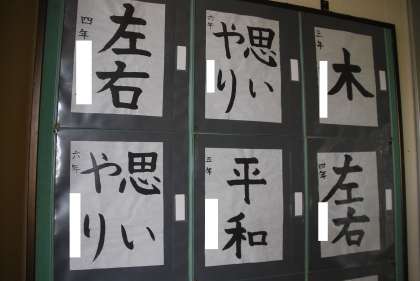 左右
四年
思い
やり
六年
木
三年
思い
やり
六年
平和
五年
左右
四年